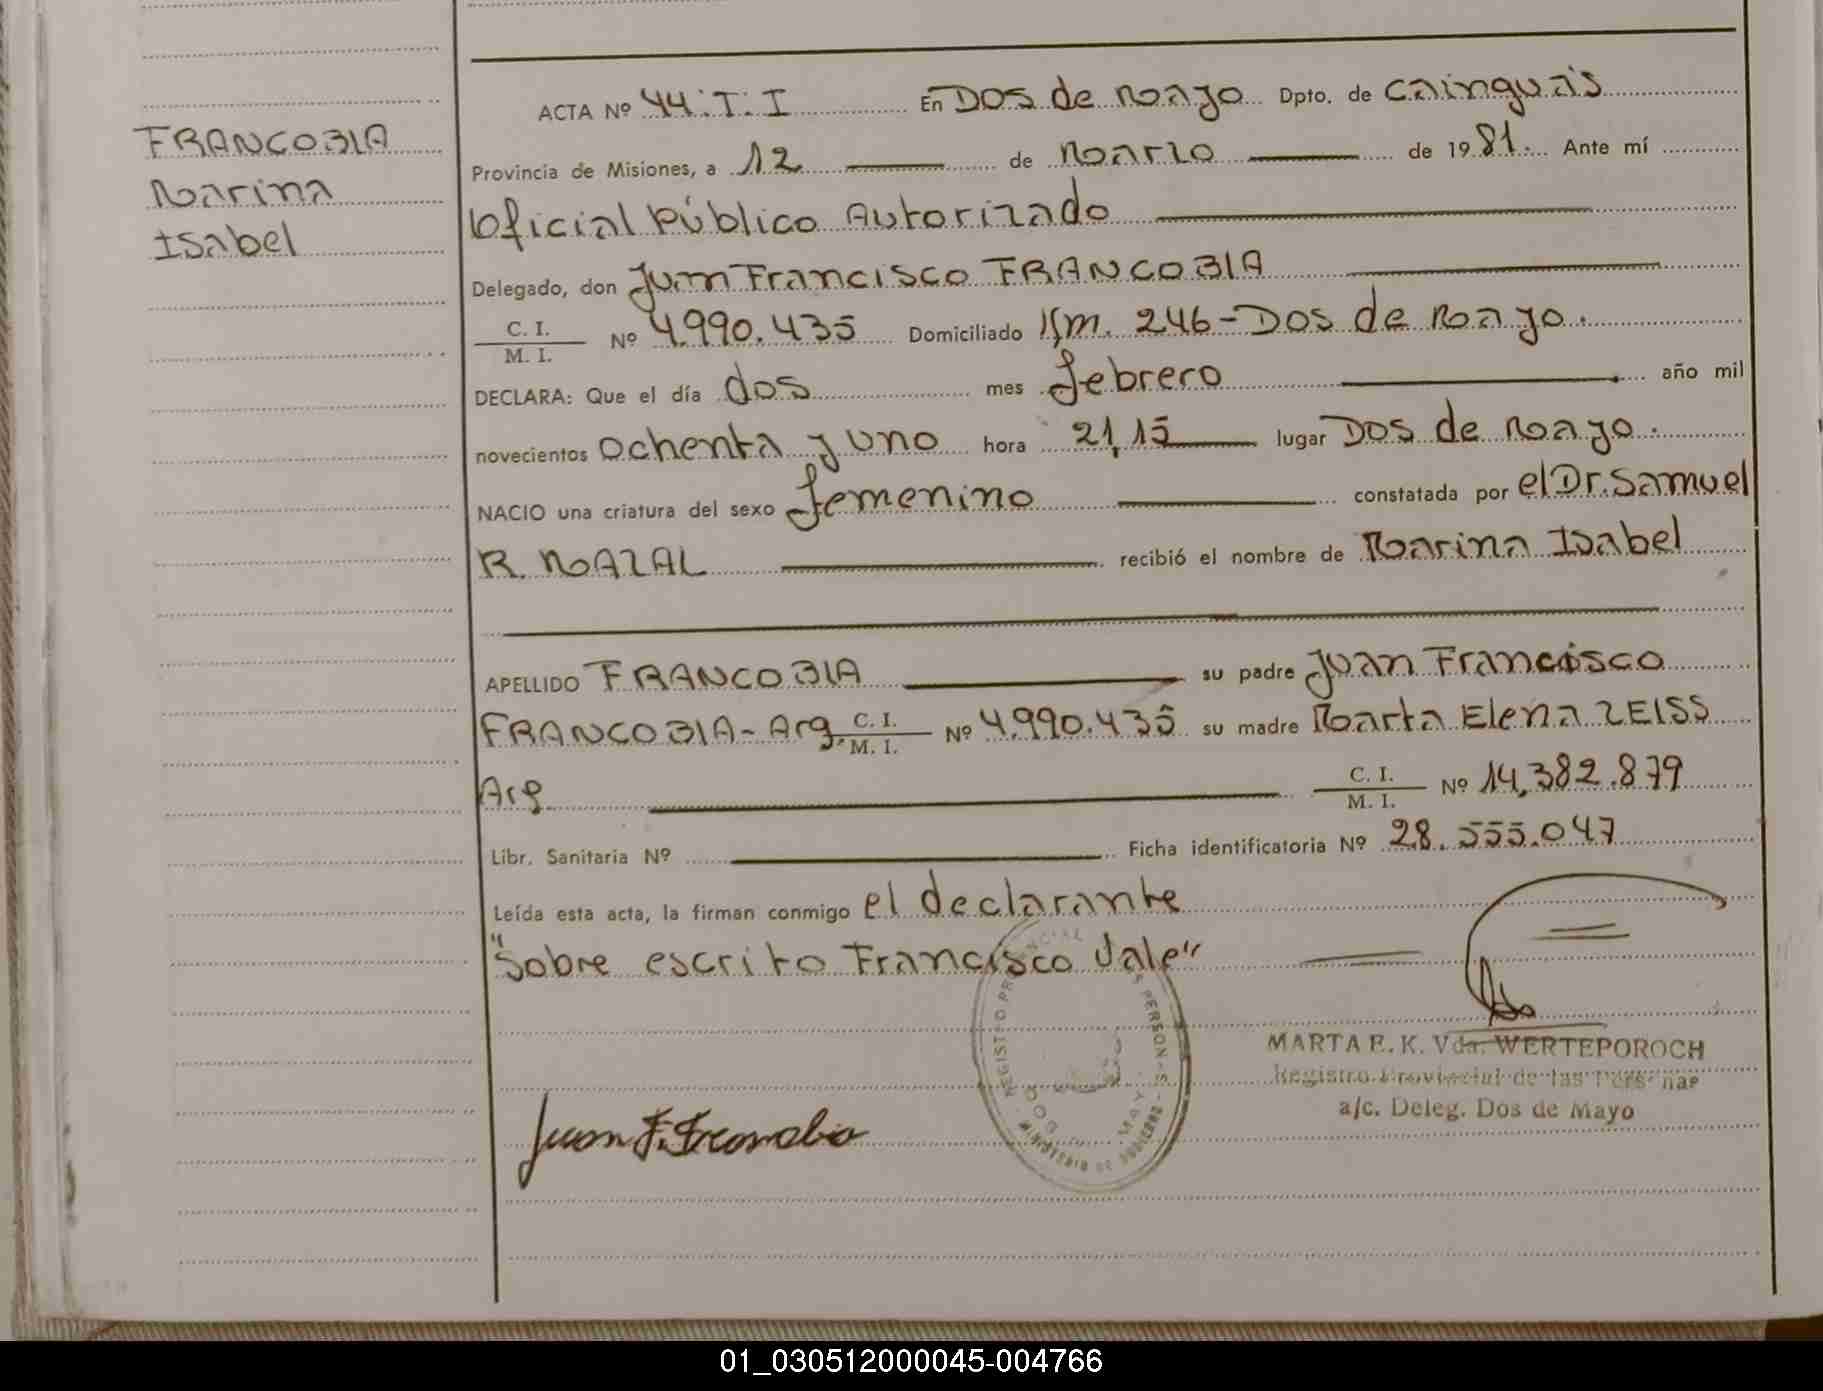 FRANCOBIA
Marina
Isabel
ACTA Nº 44.T.I En Dos de Mayo Dpto. de Cainguás
Provincia de Misiones, a 12 de Marzo de 1981. Ante mí
Oficial Público Autorizado
Delegado, don Juan Francisco FRANCOBIA
C. I.
M. I. Nº 4.990.435 Domiciliado Km. 246-Dos de Mayo.
DECLARA: Que el día dos mes febrero año mil
novecientos ochenta y uno hora 21,15 lugar Dos de Mayo.
NACIO una criatura del sexo femenino constatada por el Dr. Samuel
R. MAZAL recibió el nombre de Marina Isabel
APELLIDO FRANCOBIA su padre Juan Francisco
FRANCOBIA-Arg. C. I. M. I. Nº 4.990.435 su madre Marta Elena ZEISS
Arg C. I. M. I. Nº 14,382.879
Libr. Sanitaria Nº Ficha identificatoria Nº 28.555.047
Leída esta acta, la firman conmigo el declarante
"Sobre escrito Francisco Vale"
MARTA E. K. Vda. WERTEPOROCH
Registro Provincial de las Personas
a/c. Deleg. Dos de Mayo
Juan F. Francobia
01_030512000045-004766